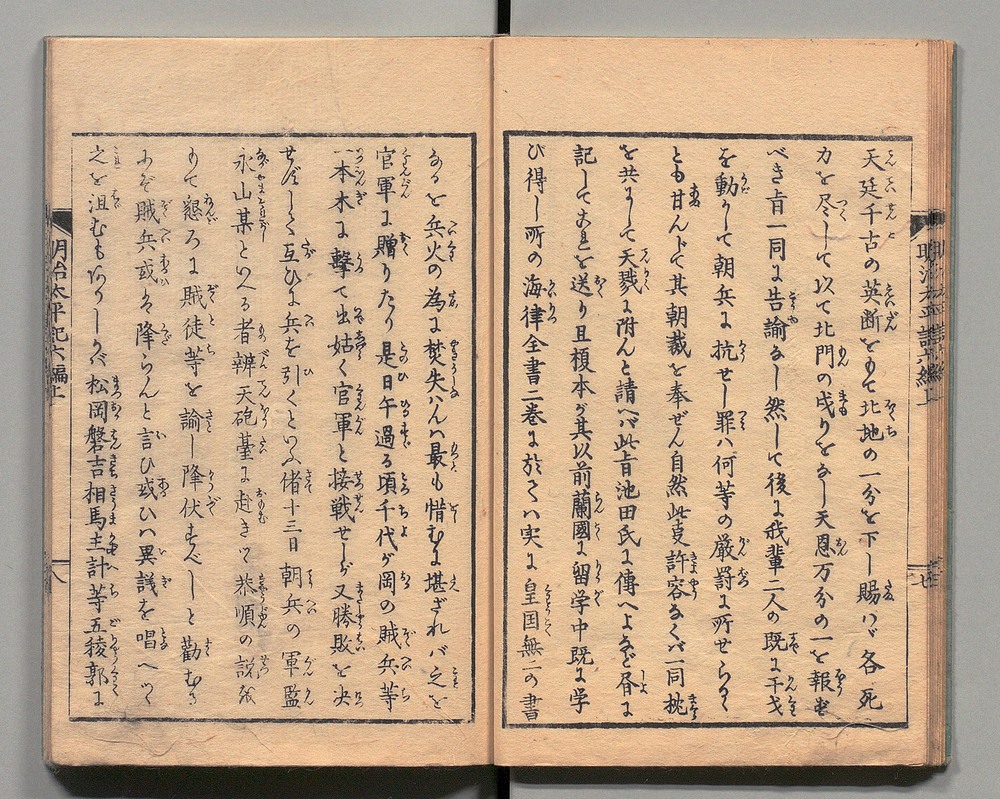 天廷千古の英断をもて北地の一分を下し賜ハヾ各死
力を尽して以て北門の戍りをなし天恩万分の一を報ず
べき旨一同に告諭なし然して後に我輩二人の既に干戈
を動かして朝兵に抗せし罪ハ何等の厳罰に所せらるゝ
とも甘んじて其朝裁を奉ぜん自然此㕝許容なくバ一同枕
を共にして天戮に附んと請へバ此旨池田氏に傳へよなど屑に
記してこれを送り且榎本が其以前蘭國に留学中既に学
び得し所の海律全書二巻に於てハ実に皇国無二の書
なるを兵火の為に焚失ハんハ最も惜むに堪ざれバ之を
官軍に贈りたり是日午過る頃千代が岡の賊兵等
一本木に撃て出姑く官軍と接戦せしが又勝敗を决
せずして互ひに兵を引くといふ偖十三日朝兵の軍監
永山某といへる者辨天砲䑓に赴きて恭順の説を
もて懇ろに賊徒等を諭し降伏すべしと勸むる
にぞ賊兵或は降らんと言ひ或ひハ異議を唱へつゝ
之を沮むもありしかバ松岡磐吉相馬主計等五稜郭に
明治太平記六編上
八
明治太平記六編上
七